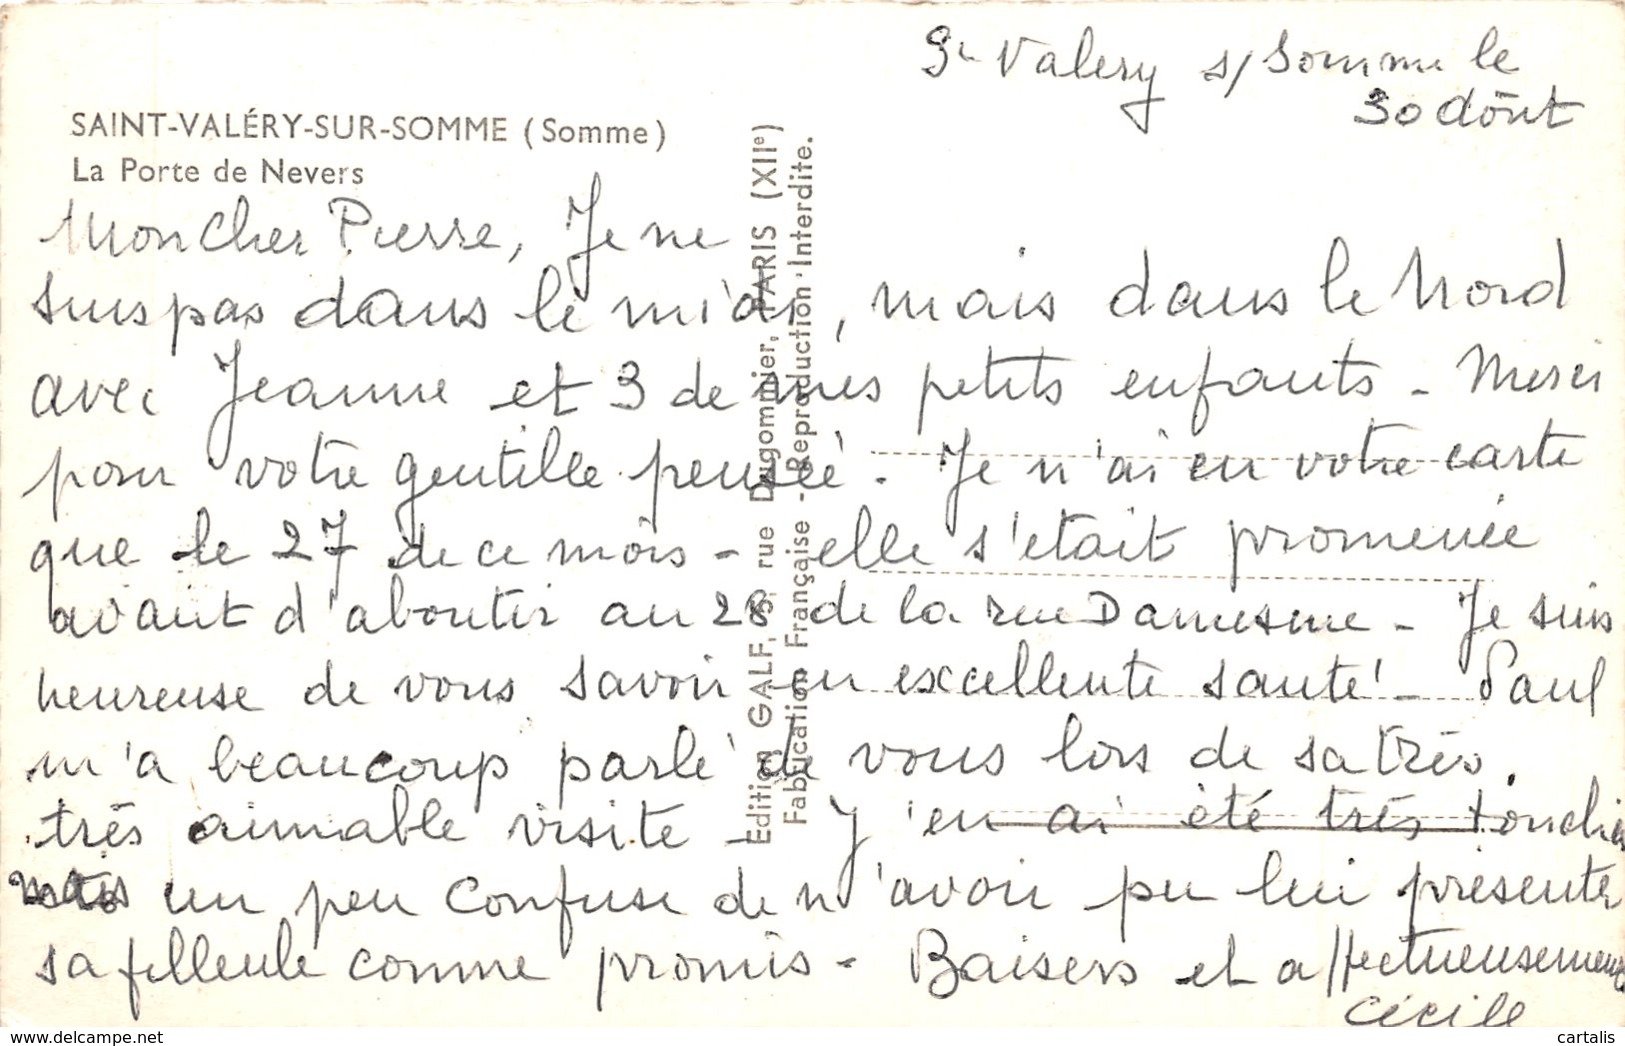 St Valery s/Somme le
30 Août
SAINT-VALÉRY-SUR-SOMME (Somme)
La Porte de Nevers
Mon Cher Pierre, Je ne
suis pas dans le midi, mais dans le Nord
avec Jeanne et 3 de mes petits enfants - Merci
pour votre gentille pensée. Je n'ai eu votre carte
que le 27 de ce mois - elle s'était promenée
avant d'aboutir au 28 de la rue Damesme - Je suis
heureuse de vous savoir en excellente santé - Paul
m'a beaucoup parlé de vous lors de sa très.
très aimable visite - J'en ai été très touchée
mais un peu confuse de n'avoir pu lui présenter
sa filleule comme promis - Baisers et affectueusement
Cécile
Edition GALF, 9, rue Dugommier, PARIS (XIIe)
Fabrication Française - Reproduction Interdite.
https://www.delcampe.net
cartalis